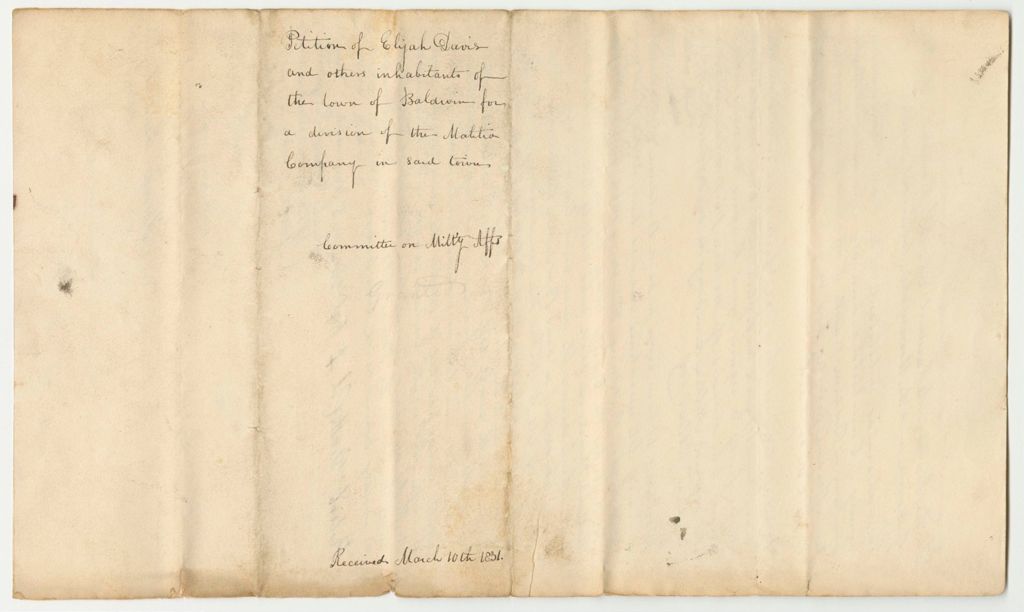 Petition of Elijah Davis
and others inhabitants of
the town of Baldwin for
a division of the Malitia
Company in said town
Committee on Milty Affs
Granted
Received March 10th 1831.